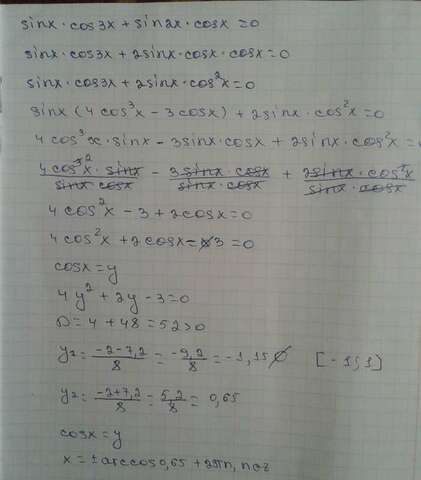 sinx · cos3x + sin2x · cosx = 0
sinx · cos3x + 2sinx · cosx · cosx = 0
sinx · cos3x + 2sinx · cos²x = 0
sinx (4cos³x - 3cosx) + 2sinx · cos²x = 0
4cos³x · sinx - 3sinx · cosx + 2sinx · cos²x =
4cos³²x · sinx / sinx cosx - 3sinx · cosx / sinx · cosx + 2sinx · cos²x / sinx · cosx
4cos²x - 3 + 2cosx = 0
4cos²x + 2cosx - 3 = 0
cosx = y
4y² + 2y - 3 = 0
D = 4 + 48 = 52 > 0
y₂ = -2-7,2 / 8 = -9,2 / 8 = -1,15 ∅ [-1; 1]
y₂ = -2+7,2 / 8 = 5,2 / 8 = 0,65
cosx = y
x = ± arccos 0,65 + 2πn, n∈z